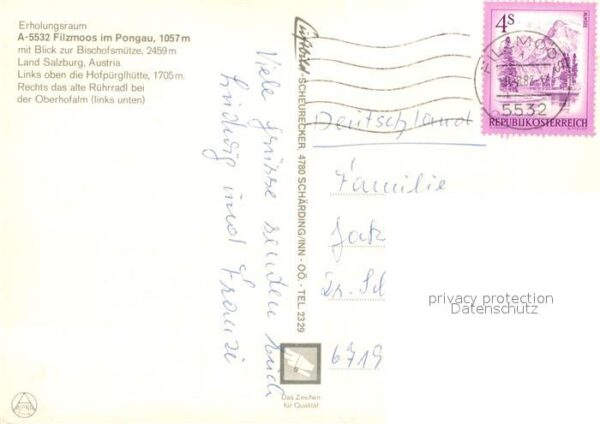 Erholungsraum
A-5532 Filzmoos im Pongau, 1057 m
mit Blick zur Bischofsmütze, 2459 m
Land Salzburg, Austria
Links oben die Hofpürglhütte, 1705 m
Rechts das alte Rührradl bei
der Oberhofalm (links unten)
Viele Grüsse senden Euch
Ludwig und Franzi
Luftbild SCHEURECKER, 4780 SCHÄRDING/INN - OÖ. - TEL. 2329
Das Zeichen
für Qualität
4S
REPUBLIK ÖSTERREICH
FILZMOOS
5532
Deutschland
Familie
Jak
Dr. Sch
6719
privacy protection
Datenschutz